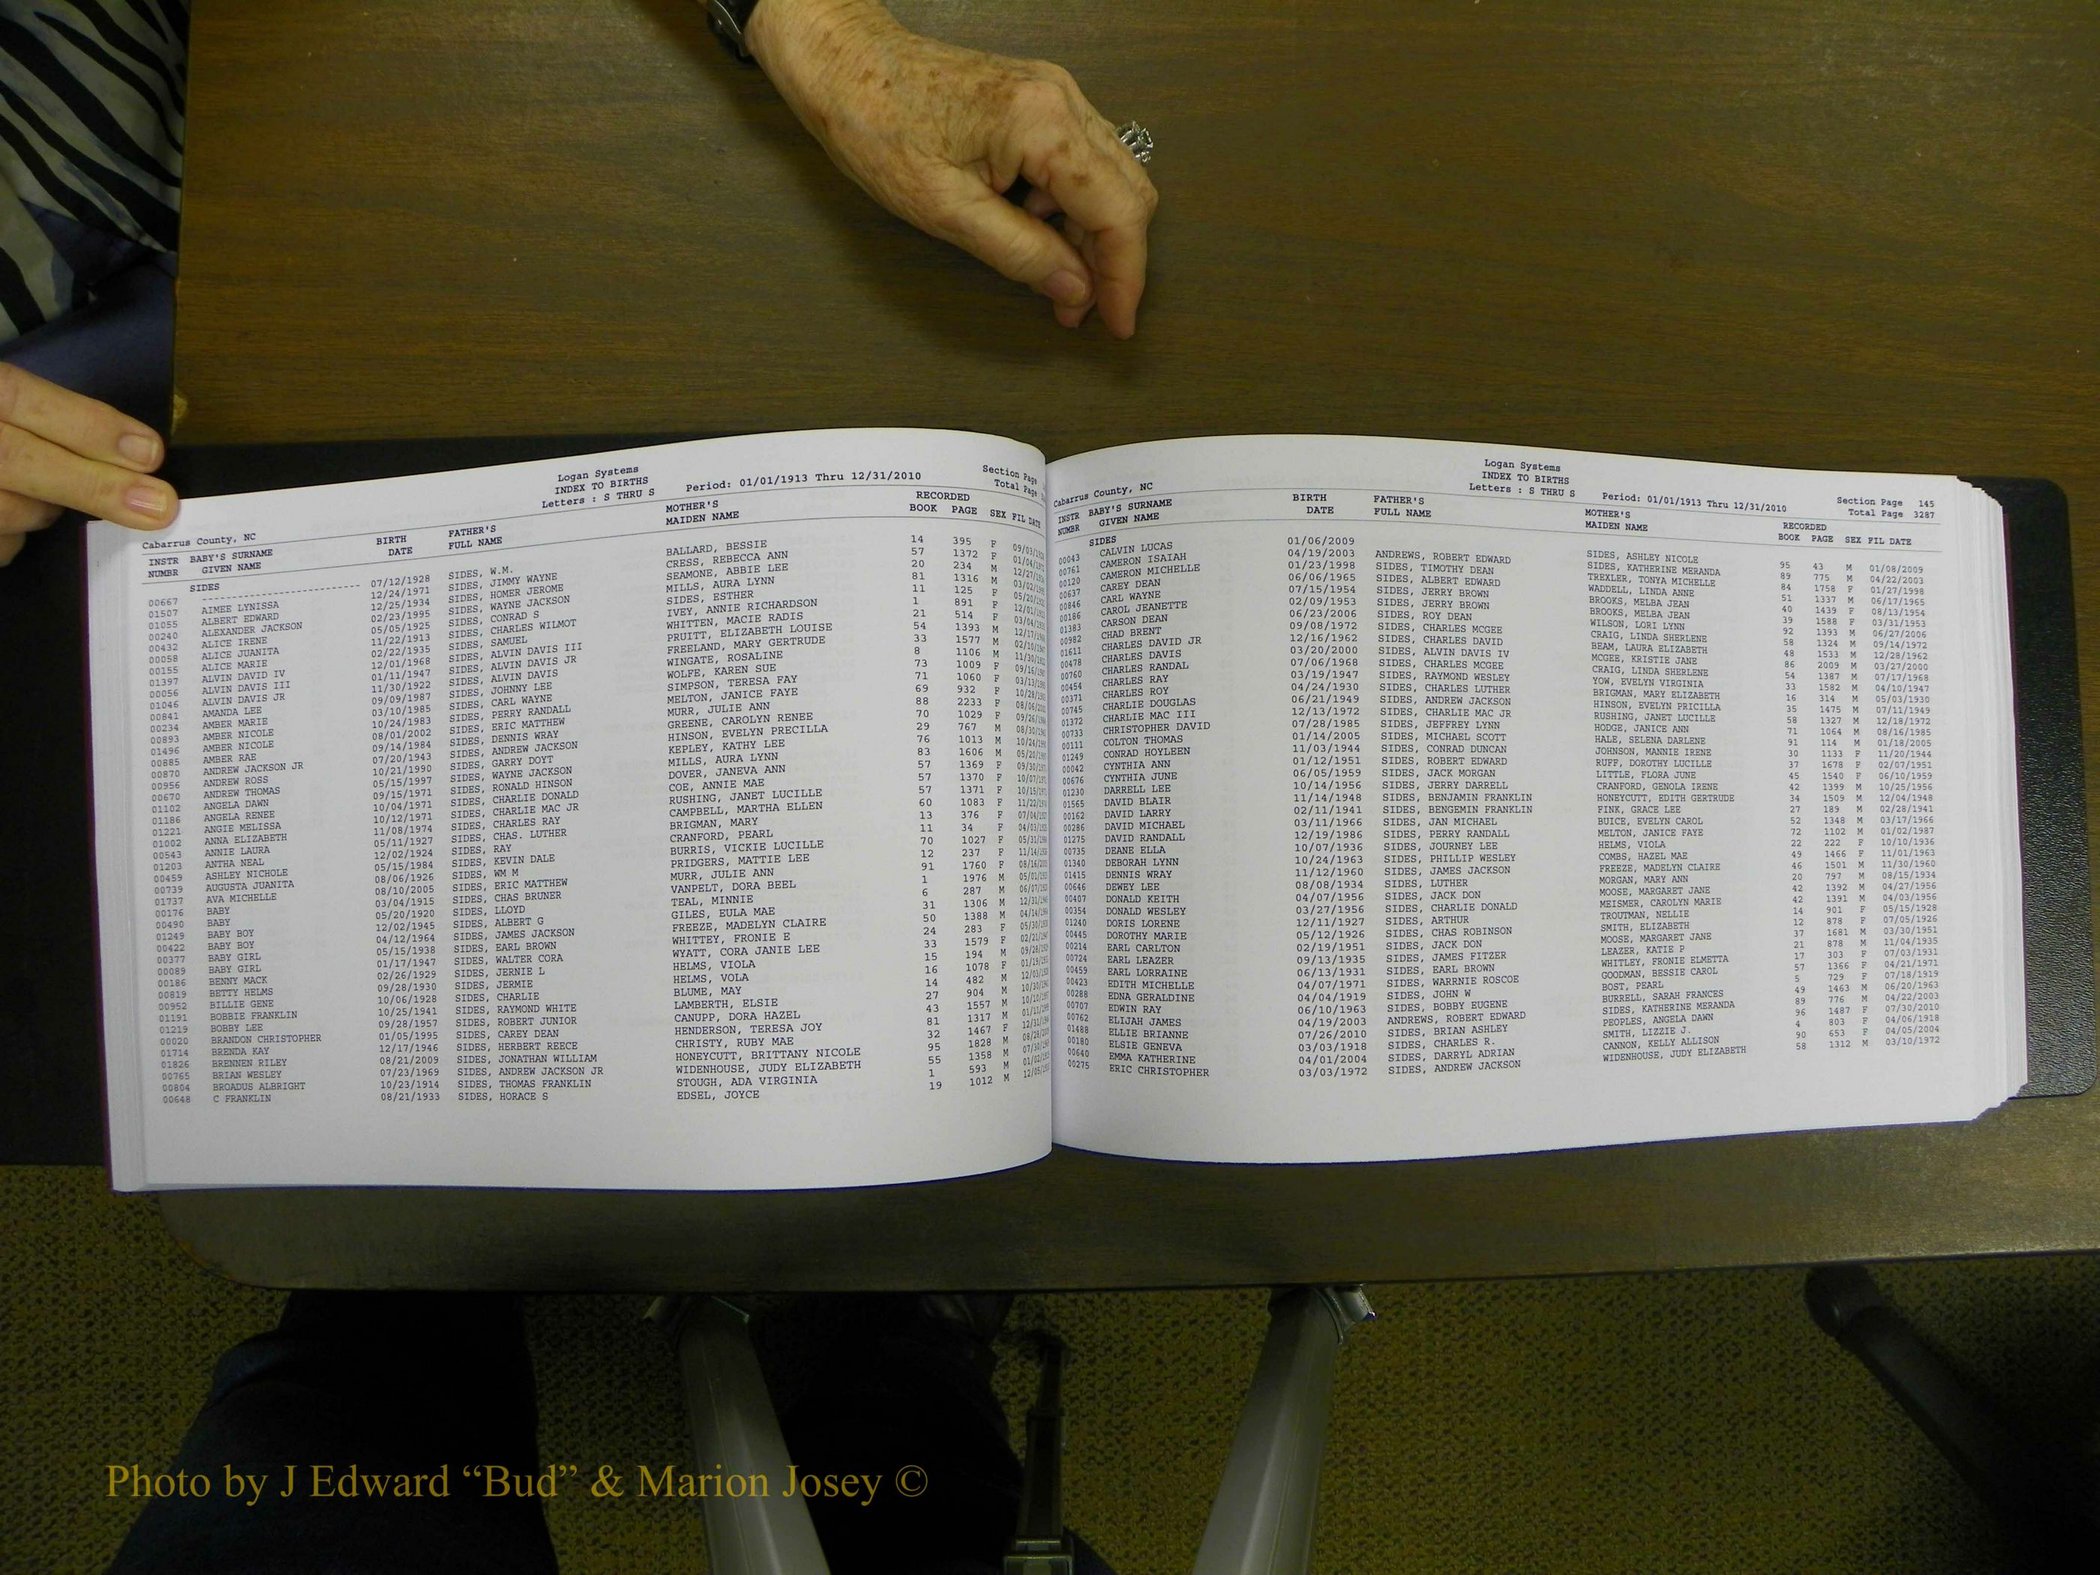 Logan Systems
INDEX TO BIRTHS
Letters : S THRU S Period: 01/01/1913 Thru 12/31/2010
Section Page
Total Page
Cabarrus County, NC
INSTR BABY'S SURNAME BIRTH FATHER'S MOTHER'S RECORDED
NUMBR GIVEN NAME DATE FULL NAME MAIDEN NAME BOOK PAGE SEX FIL DATE
SIDES
00667 ---------------------------- 07/12/1928 SIDES, W.M. BALLARD, BESSIE 14 395 F
01507 AIMEE LYNISSA 12/24/1971 SIDES, JIMMY WAYNE CRESS, REBECCA ANN 57 1372 F
01055 ALBERT EDWARD 12/25/1934 SIDES, HOMER JEROME SEAMONE, ABBIE LEE 20 234 M
00240 ALEXANDER JACKSON 02/23/1995 SIDES, WAYNE JACKSON MILLS, AURA LYNN 81 1316 M
00432 ALICE IRENE 05/05/1925 SIDES, CONRAD S SIDES, ESTHER 11 125 F
00058 ALICE JUANITA 11/22/1913 SIDES, CHARLES WILMOT IVEY, ANNIE RICHARDSON 1 891 F
00155 ALICE MARIE 02/22/1935 SIDES, SAMUEL WHITTEN, MACIE RADIS 21 514 F
01397 ALVIN DAVID IV 12/01/1968 SIDES, ALVIN DAVIS III PRUITT, ELIZABETH LOUISE 54 1393 M
00056 ALVIN DAVIS III 01/11/1947 SIDES, ALVIN DAVIS JR FREELAND, MARY GERTRUDE 33 1577 M
01046 ALVIN DAVIS JR 11/30/1922 SIDES, ALVIN DAVIS WINGATE, ROSALINE 8 1106 M
00841 AMANDA LEE 09/09/1987 SIDES, JOHNNY LEE WOLFE, KAREN SUE 73 1009 F
00234 AMBER MARIE 03/10/1985 SIDES, CARL WAYNE SIMPSON, TERESA FAY 71 1060 F
00893 AMBER NICOLE 10/24/1983 SIDES, PERRY RANDALL MELTON, JANICE FAYE 69 932 F
01496 AMBER NICOLE 08/01/2002 SIDES, ERIC MATTHEW MURR, JULIE ANN 88 2233 F
00885 AMBER RAE 09/14/1984 SIDES, DENNIS WRAY GREENE, CAROLYN RENEE 70 1029 F
00870 ANDREW JACKSON JR 07/20/1943 SIDES, ANDREW JACKSON HINSON, EVELYN PRECILLA 29 767 M
00956 ANDREW ROSS 10/21/1990 SIDES, GARRY DOYT KEPLEY, KATHY LEE 76 1013 M
00670 ANDREW THOMAS 05/15/1997 SIDES, WAYNE JACKSON MILLS, AURA LYNN 83 1606 M
01102 ANGELA DAWN 09/15/1971 SIDES, RONALD HINSON DOVER, JANEVA ANN 57 1369 F
01186 ANGELA RENEE 10/04/1971 SIDES, CHARLIE DONALD COE, ANNIE MAE 57 1370 F
01221 ANGIE MELISSA 10/12/1971 SIDES, CHARLIE MAC JR RUSHING, JANET LUCILLE 57 1371 F
01002 ANNA ELIZABETH 11/08/1974 SIDES, CHARLES RAY CAMPBELL, MARTHA ELLEN 60 1083 F
00543 ANNIE LAURA 05/11/1927 SIDES, CHAS. LUTHER BRIGMAN, MARY 13 376 F
01203 ANTHA NEAL 12/02/1924 SIDES, RAY CRANFORD, PEARL 11 34 F
00459 ASHLEY NICHOLE 05/15/1984 SIDES, KEVIN DALE BURRIS, VICKIE LUCILLE 70 1027 F
00739 AUGUSTA JUANITA 08/06/1926 SIDES, WM M PRIDGERS, MATTIE LEE 12 237 F
01737 AVA MICHELLE 08/10/2005 SIDES, ERIC MATTHEW MURR, JULIE ANN 91 1760 F
00176 BABY 03/04/1915 SIDES, CHAS BRUNER VANPELT, DORA BEEL 1 1976 M
00490 BABY 05/20/1920 SIDES, LLOYD TEAL, MINNIE 6 287 M
01249 BABY BOY 12/02/1945 SIDES, ALBERT G GILES, EULA MAE 31 1306 M
00422 BABY BOY 04/12/1964 SIDES, JAMES JACKSON FREEZE, MADELYN CLAIRE 50 1388 M
00377 BABY GIRL 05/15/1938 SIDES, EARL BROWN WHITTEY, FRONIE E 24 283 F
00089 BABY GIRL 01/17/1947 SIDES, WALTER CORA WYATT, CORA JANIE LEE 33 1579 F
00186 BENNY MACK 02/26/1929 SIDES, JERNIE L HELMS, VIOLA 15 194 M
00819 BETTY HELMS 09/28/1930 SIDES, JERMIE HELMS, VOLA 16 1078 F
00952 BILLIE GENE 10/06/1928 SIDES, CHARLIE BLUME, MAY 14 482 M
01191 BOBBIE FRANKLIN 10/25/1941 SIDES, RAYMOND WHITE LAMBERTH, ELSIE 27 904 M
01219 BOBBY LEE 09/28/1957 SIDES, ROBERT JUNIOR CANUPP, DORA HAZEL 43 1557 M
00020 BRANDON CHRISTOPHER 01/05/1995 SIDES, CAREY DEAN HENDERSON, TERESA JOY 81 1317 M
01714 BRENDA KAY 12/17/1946 SIDES, HERBERT REECE CHRISTY, RUBY MAE 32 1467 F
01826 BRENNEN RILEY 08/21/2009 SIDES, JONATHAN WILLIAM HONEYCUTT, BRITTANY NICOLE 95 1828 M
00765 BRIAN WESLEY 07/23/1969 SIDES, ANDREW JACKSON JR WIDENHOUSE, JUDY ELIZABETH 55 1358 M
00804 BROADUS ALBRIGHT 10/23/1914 SIDES, THOMAS FRANKLIN STOUGH, ADA VIRGINIA 1 593 M
00648 C FRANKLIN 08/21/1933 SIDES, HORACE S EDSEL, JOYCE 19 1012 M
Logan Systems
INDEX TO BIRTHS
Letters : S THRU S Period: 01/01/1913 Thru 12/31/2010
Section Page 145
Total Page 3287
Cabarrus County, NC
INSTR BABY'S SURNAME BIRTH FATHER'S MOTHER'S RECORDED
NUMBR GIVEN NAME DATE FULL NAME MAIDEN NAME BOOK PAGE SEX FIL DATE
SIDES
00043 CALVIN LUCAS 01/06/2009 SIDES, ASHLEY NICOLE 95 43 M 01/08/2009
00761 CAMERON ISAIAH 04/19/2003 ANDREWS, ROBERT EDWARD SIDES, KATHERINE MERANDA 89 775 M 04/22/2003
00120 CAMERON MICHELLE 01/23/1998 SIDES, TIMOTHY DEAN TREXLER, TONYA MICHELLE 84 1758 F 01/27/1998
00637 CAREY DEAN 06/06/1965 SIDES, ALBERT EDWARD WADDELL, LINDA ANNE 51 1337 M 06/17/1965
00846 CARL WAYNE 07/15/1954 SIDES, JERRY BROWN BROOKS, MELBA JEAN 40 1439 F 08/13/1954
00186 CAROL JEANETTE 02/09/1953 SIDES, JERRY BROWN BROOKS, MELBA JEAN 39 1588 F 03/31/1953
01383 CARSON DEAN 06/23/2006 SIDES, ROY DEAN WILSON, LORI LYNN 92 1393 M 06/27/2006
00982 CHAD BRENT 09/08/1972 SIDES, CHARLES MCGEE CRAIG, LINDA SHERLENE 58 1324 M 09/14/1972
01611 CHARLES DAVID JR 12/16/1962 SIDES, CHARLES DAVID BEAM, LAURA ELIZABETH 48 1533 M 12/28/1962
00478 CHARLES DAVIS 03/20/2000 SIDES, ALVIN DAVIS IV MCGEE, KRISTIE JANE 86 2009 M 03/27/2000
00760 CHARLES RANDAL 07/06/1968 SIDES, CHARLES MCGEE CRAIG, LINDA SHERLENE 54 1387 M 07/17/1968
00454 CHARLES RAY 03/19/1947 SIDES, RAYMOND WESLEY YOW, EVELYN VIRGINIA 33 1582 M 04/10/1947
00371 CHARLES ROY 04/24/1930 SIDES, CHARLES LUTHER BRIGMAN, MARY ELIZABETH 16 314 M 05/03/1930
00745 CHARLIE DOUGLAS 06/21/1949 SIDES, ANDREW JACKSON HINSON, EVELYN PRICILLA 35 1475 M 07/11/1949
01372 CHARLIE MAC III 12/13/1972 SIDES, CHARLIE MAC JR RUSHING, JANET LUCILLE 58 1327 M 12/18/1972
00733 CHRISTOPHER DAVID 07/28/1985 SIDES, JEFFREY LYNN HODGE, JANICE ANN 71 1064 M 08/16/1985
00111 COLTON THOMAS 01/14/2005 SIDES, MICHAEL SCOTT HALE, SELENA DARLENE 91 114 M 01/18/2005
01249 CONRAD HOYLEEN 11/03/1944 SIDES, CONRAD DUNCAN JOHNSON, MANNIE IRENE 30 1133 F 11/20/1944
00042 CYNTHIA ANN 01/12/1951 SIDES, ROBERT EDWARD RUFF, DOROTHY LUCILLE 37 1678 F 02/07/1951
00676 CYNTHIA JUNE 06/05/1959 SIDES, JACK MORGAN LITTLE, FLORA JUNE 45 1540 F 06/10/1959
01230 DARRELL LEE 10/14/1956 SIDES, JERRY DARRELL CRANFORD, GENOLA IRENE 42 1399 M 10/25/1956
01565 DAVID BLAIR 11/14/1948 SIDES, BENJAMIN FRANKLIN HONEYCUTT, EDITH GERTRUDE 34 1509 M 12/04/1948
00162 DAVID LARRY 02/11/1941 SIDES, BENGEMIN FRANKLIN FINK, GRACE LEE 27 189 M 02/28/1941
00286 DAVID MICHAEL 03/11/1966 SIDES, JAN MICHAEL BUICE, EVELYN CAROL 52 1348 M 03/17/1966
01275 DAVID RANDALL 12/19/1986 SIDES, PERRY RANDALL MELTON, JANICE FAYE 72 1102 M 01/02/1987
00735 DEANE ELLA 10/07/1936 SIDES, JOURNEY LEE HELMS, VIOLA 22 222 F 10/10/1936
01340 DEBORAH LYNN 10/24/1963 SIDES, PHILLIP WESLEY COMBS, HAZEL MAE 49 1466 F 11/01/1963
01415 DENNIS WRAY 11/12/1960 SIDES, JAMES JACKSON FREEZE, MADELYN CLAIRE 46 1501 M 11/30/1960
00646 DEWEY LEE 08/08/1934 SIDES, LUTHER MORGAN, MARY ANN 20 797 M 08/15/1934
00407 DONALD KEITH 04/07/1956 SIDES, JACK DON MOOSE, MARGARET JANE 42 1392 M 04/27/1956
00354 DONALD WESLEY 03/27/1956 SIDES, CHARLIE DONALD MEISMER, CAROLYN MARIE 42 1391 M 04/03/1956
01240 DORIS LORENE 12/11/1927 SIDES, ARTHUR TROUTMAN, NELLIE 14 901 F 05/15/1928
00445 DOROTHY MARIE 05/12/1926 SIDES, CHAS ROBINSON SMITH, ELIZABETH 12 878 F 07/05/1926
00214 EARL CARLTON 02/19/1951 SIDES, JACK DON MOOSE, MARGARET JANE 37 1681 M 03/30/1951
00724 EARL LEAZER 09/13/1935 SIDES, JAMES FITZER LEAZER, KATIE P 21 878 M 11/04/1935
00459 EARL LORRAINE 06/13/1931 SIDES, EARL BROWN WHITLEY, FRONIE ELMETTA 17 303 F 07/03/1931
00423 EDITH MICHELLE 04/07/1971 SIDES, WARRNIE ROSCOE GOODMAN, BESSIE CAROL 57 1366 F 04/21/1971
00288 EDNA GERALDINE 04/04/1919 SIDES, JOHN W BOST, PEARL 5 729 F 07/18/1919
00707 EDWIN RAY 06/10/1963 SIDES, BOBBY EUGENE BURRELL, SARAH FRANCES 49 1463 M 06/20/1963
00762 ELIJAH JAMES 04/19/2003 ANDREWS, ROBERT EDWARD SIDES, KATHERINE MERANDA 89 776 M 04/22/2003
01488 ELLIE BRIANNE 07/26/2010 SIDES, BRIAN ASHLEY PEOPLES, ANGELA DAWN 96 1487 F 07/30/2010
00180 ELSIE GENEVA 03/03/1918 SIDES, CHARLES R. SMITH, LIZZIE J. 4 803 F 04/06/1918
00640 EMMA KATHERINE 04/01/2004 SIDES, DARRYL ADRIAN CANNON, KELLY ALLISON 90 653 F 04/05/2004
00275 ERIC CHRISTOPHER 03/03/1972 SIDES, ANDREW JACKSON WIDENHOUSE, JUDY ELIZABETH 58 1312 M 03/10/1972
Photo by J Edward “Bud” & Marion Josey ©